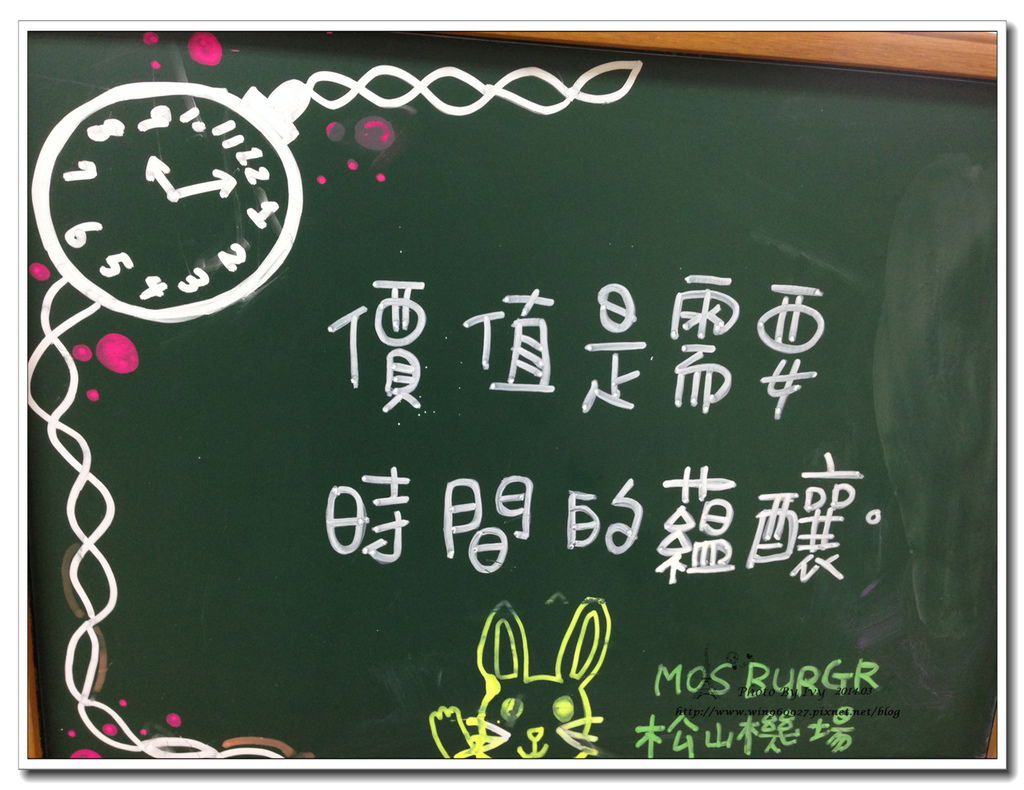 12
1
2
3
4
5
6
7
8
9
10
11
價值是需要
時間的蘊釀。
MOS BURGR
Photo By Ivy 2014.03
http://www.win960927.pixnet.net/blog
松山機場